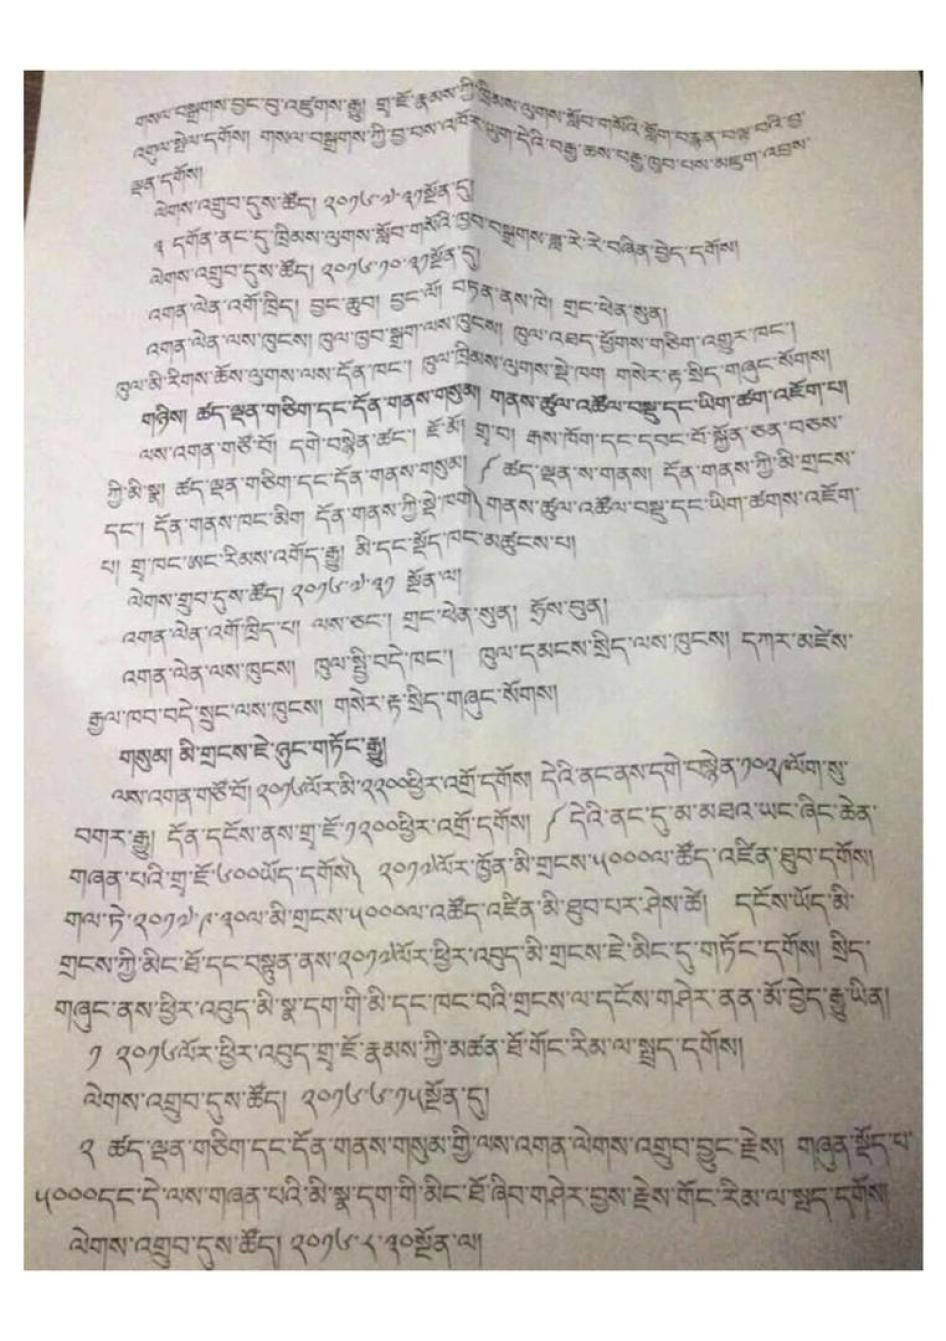 གསལ་བསྒྲགས་བྱང་བུ་འཛུགས་རྒྱུ། གྲྭ་ཇོ་རྣམས་ཀྱི་ཁྲིམས་ལུགས་སློབ་གསོའི་སློག་བརྙན་བལྟ་བའི་བྱ་
འགུལ་སྤེལ་དགོས། གསལ་བསྒྲགས་ཀྱི་བྱ་བས་འཁོར་ཡུག་དེའི་བརྒྱ་ཆས་བརྒྱ་ཁྱབ་པས་མཇུག་འབྲས་
ལྡན་དགོས།
ལེགས་འགྲུབ་དུས་ཚོད། ༢༠༡༦་༧་༣༡སྔོན་དུ།
༣ དགོན་ནང་དུ་ཁྲིམས་ལུགས་སློབ་གསོའི་ཁྱབ་བསྒྲགས་ཟླ་རེ་རེ་བཞིན་བྱེད་དགོས།
ལེགས་འགྲུབ་དུས་ཚོད། ༢༠༡༦་༡༠་༣༡སྔོན་དུ།
འགན་ལེན་འགོ་ཁྲིད། བྱང་ཆུབ། བྱང་ལོ། བཏན་ནས་ཁེ། གྲང་ཕེན་སུན།
འགན་ལེན་ལས་ཁུངས། ཁུལ་ཁྱབ་སྒྲག་ལས་ཁུངས། ཁུལ་འཐབ་ཕྱོགས་གཅིག་འགྱུར་ཁང་།
ཁུལ་མི་རིགས་ཆོས་ལུགས་ལས་དོན་ཁང་། ཁུལ་ཁྲིམས་ལུགས་སྡེ་ཁག གསེར་རྟ་སྲིད་གཞུང་སོགས།
གཉིས། ཚད་ལྡན་གཅིག་དང་དོན་གནས་གསུམ། གནས་ཚུལ་འཚོལ་བསྡུ་དང་ཡིག་ཚག་འཇོག་པ།
ལས་འགན་གཙོ་བོ། དགེ་བསྙེན་ཚང་། ཇོ་མོ། གྲྭ་བ། རྒས་ཁོག་དང་དབང་པོ་སྐྱོན་ཅན་བཅས་
ཀྱི་མི་སྣ། ཚད་ལྡན་གཅིག་དང་དོན་གནས་གསུམ། (ཚད་ལྡན་ས་གནས། དོན་གནས་ཀྱི་མི་གྲངས་
དང་། དོན་གནས་ཁང་མིག དོན་གནས་ཀྱི་སྡེ་ཁག) གནས་ཚུལ་འཚོལ་བསྡུ་དང་ཡིག་ཚགས་འཇོག་
པ། གྲྭ་ཁང་ཨང་རིམས་འགོད་རྒྱུ། མི་དང་སྡོད་ཁང་མཚུངས་པ།
ལེགས་གྲུབ་དུས་ཚོད། ༢༠༡༦་༧་༣༡ སྔོན་ལ།
འགན་ལེན་འགོ་ཁྲིད་པ། ལས་ཅང་། གྲང་ཕེན་སུན། ཧྲོས་བུན།
འགན་ལེན་ལས་ཁུངས། ཁུལ་སྤྱི་བདེ་ཁང་། ཁུལ་དམངས་སྲིད་ལས་ཁུངས། དཀར་མཛེས་
རྒྱལ་ཁབ་བདེ་སྲུང་ལས་ཁུངས། གསེར་རྟ་སྲིད་གཞུང་སོགས།
གསུམ། མི་གྲངས་ཇེ་ཉུང་གཏོང་རྒྱུ།
ལས་འགན་གཙོ་བོ། ༢༠༡༦ལོར་མི་༢༢༠༠ཕྱིར་འགྲོ་དགོས། དེའི་ནང་ནས་དགེ་བསྙེན་༡༠༢༨ལོག་སུ་
བགར་རྒྱུ། དོན་དངོས་ནས་གྲྭ་ཇོ་༡༢༠༠ཕྱིར་འགྲོ་དགོས། (དེའི་ནང་དུ་མ་མཐའ་ཡང་ཞིང་ཆེན་
གཞན་པའི་གྲྭ་ཇོ་༦༠༠ཡོད་དགོས) ༢༠༡༧ལོར་ཁྱོན་མི་གྲངས་༥༠༠༠ལ་ཚོད་འཛིན་ཐུབ་དགོས།
གལ་ཏེ་༢༠༡༧་༩་༣༠ལ་མི་གྲངས་༥༠༠༠ལ་འཚོད་འཛིན་མི་ཐུབ་པར་ཤེས་ཚེ། དངོས་ཡོད་མི་
གྲངས་ཀྱི་མིང་ཐོ་དང་བསྟུན་ནས་༢༠༡༧ལོར་ཕྱིར་འབུད་མི་གྲངས་ཇེ་མིང་དུ་གཏོང་དགོས། སྲིད་
གཞུང་ནས་ཕྱིར་འབུད་མི་སྣ་དག་གི་མི་དང་ཁང་བའི་གྲངས་ལ་དངོས་གཤེར་ནན་མོ་བྱེད་རྒྱུ་ཡིན།
༡ ༢༠༡༦ལོར་ཕྱིར་འབུད་གྲྭ་ཇོ་རྣམས་ཀྱི་མཚན་ཐོ་གོང་རིམ་ལ་སྤྲད་དགོས།
ལེགས་འགྲུབ་དུས་ཚོད། ༢༠༡༦་༦་༡༥སྔོན་དུ།
༢ ཚད་ལྡན་གཅིག་དང་དོན་གནས་གསུམ་གྱི་ལས་འགན་ལེགས་འགྲུབ་བྱུང་རྗེས། གཞུན་སྡོད་པ་
༥༠༠༠དང་དེ་ལས་གཞན་པའི་མི་སྣ་དག་གི་མིང་ཐོ་ཞིབ་གཤེར་བྱས་རྗེས་གོང་རིམ་ལ་སྤྲད་དགོས།
ལེགས་འགྲུབ་དུས་ཚོད། ༢༠༡༦་༨་༣༠སྔོན་ལ།